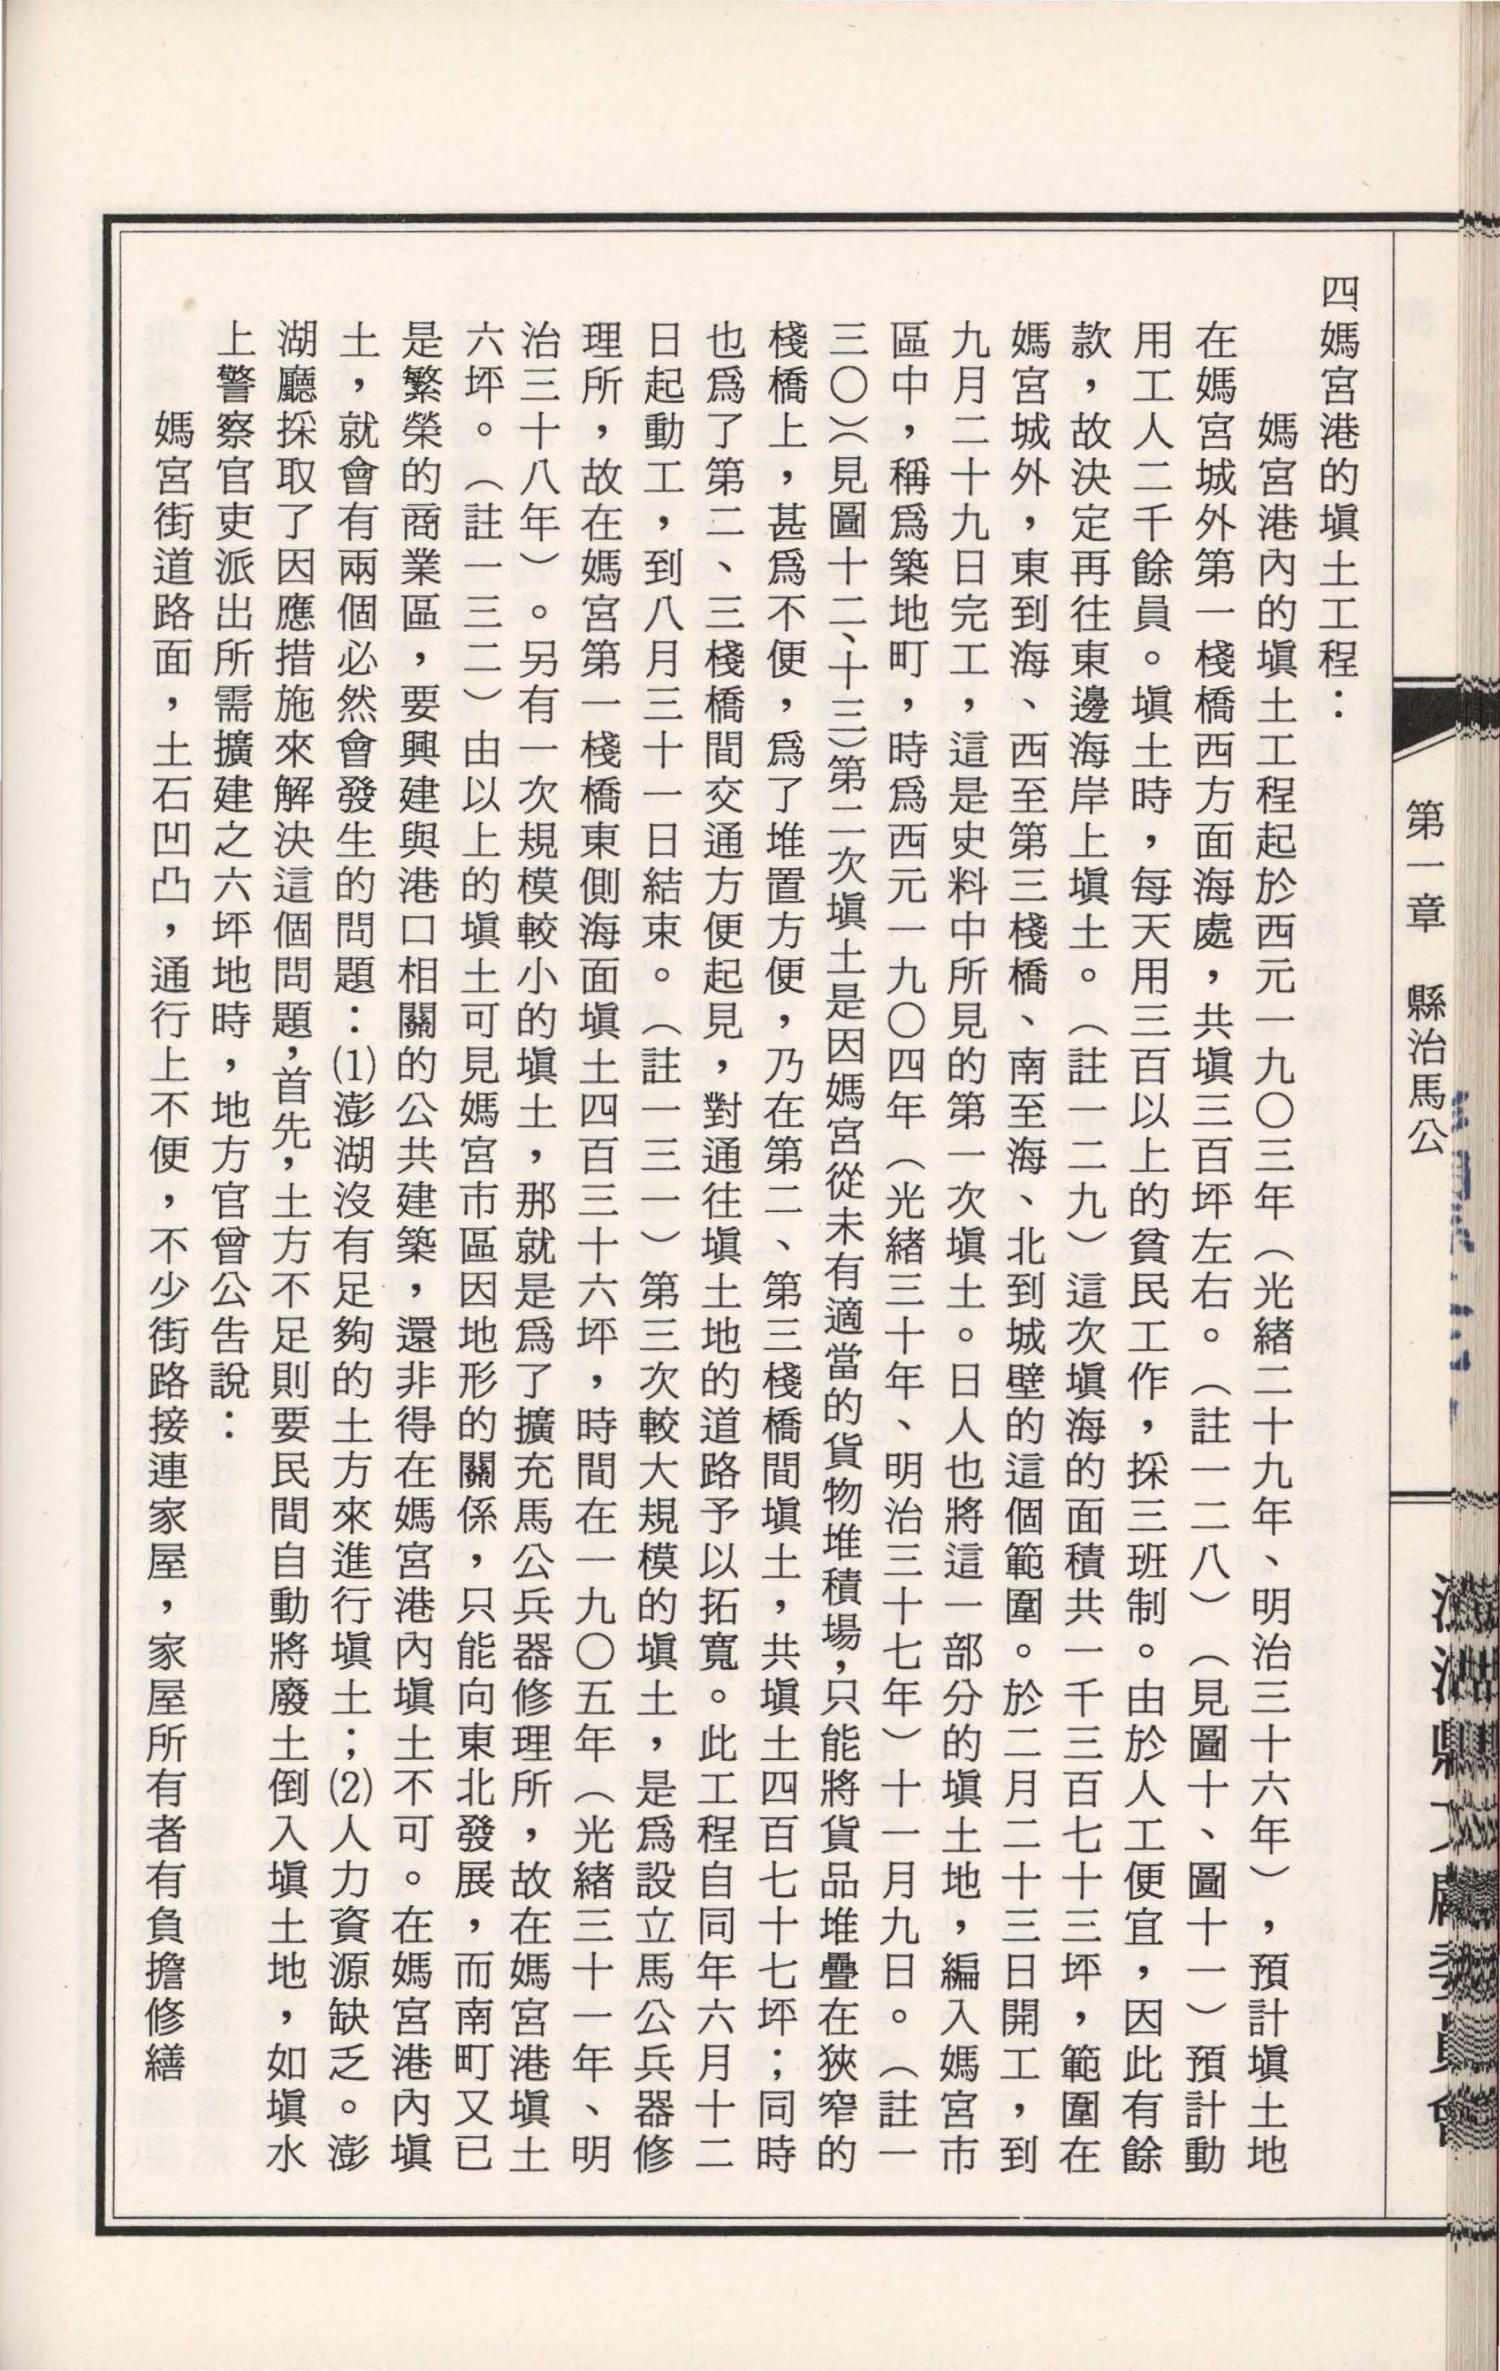 第一章　縣治馬公
四、媽宮港的塡土工程：
媽宮港內的塡土工程起於西元一九〇三年（光緒二十九年、明治三十六年），預計塡土地
在媽宮城外第一棧橋西方面海處，共塡三百坪左右。（註一二八）（見圖十、圖十一）預計動
用工人二千餘員。塡土時，每天用三百以上的貧民工作，採三班制。由於人工便宜，因此有餘
款，故決定再往東邊海岸上塡土。（註一二九）這次塡海的面積共一千三百七十三坪，範圍在
媽宮城外，東到海、西至第三棧橋、南至海、北到城壁的這個範圍。於二月二十三日開工，到
九月二十九日完工，這是史料中所見的第一次塡土。日人也將這一部分的塡土地，編入媽宮市
區中，稱爲築地町，時爲西元一九〇四年（光緒三十年、明治三十七年）十一月九日。（註一
三〇）（見圖十二、十三）第二次塡土是因媽宮從未有適當的貨物堆積場，只能將貨品堆疊在狹窄的
棧橋上，甚爲不便，爲了堆置方便，乃在第二、第三棧橋間塡土，共塡土四百七十七坪；同時
也爲了第二、三棧橋間交通方便起見，對通往塡土地的道路予以拓寬。此工程自同年六月十二
日起動工，到八月三十一日結束。（註一三一）第三次較大規模的塡土，是爲設立馬公兵器修
理所，故在媽宮第一棧橋東側海面塡土四百三十六坪，時間在一九〇五年（光緒三十一年、明
治三十八年）。另有一次規模較小的塡土，那就是爲了擴充馬公兵器修理所，故在媽宮港塡土
六坪。（註一三二）由以上的塡土可見媽宮市區因地形的關係，只能向東北發展，而南町又已
是繁榮的商業區，要興建與港口相關的公共建築，還非得在媽宮港內塡土不可。在媽宮港內塡
土，就會有兩個必然會發生的問題：⑴澎湖沒有足夠的土方來進行塡土；⑵人力資源缺乏。澎
湖廳採取了因應措施來解決這個問題，首先，土方不足則要民間自動將廢土倒入塡土地，如塡水
上警察官吏派出所需擴建之六坪地時，地方官曾公告說：
媽宮街道路面，土石凹凸，通行上不便，不少街路接連家屋，家屋所有者有負擔修繕